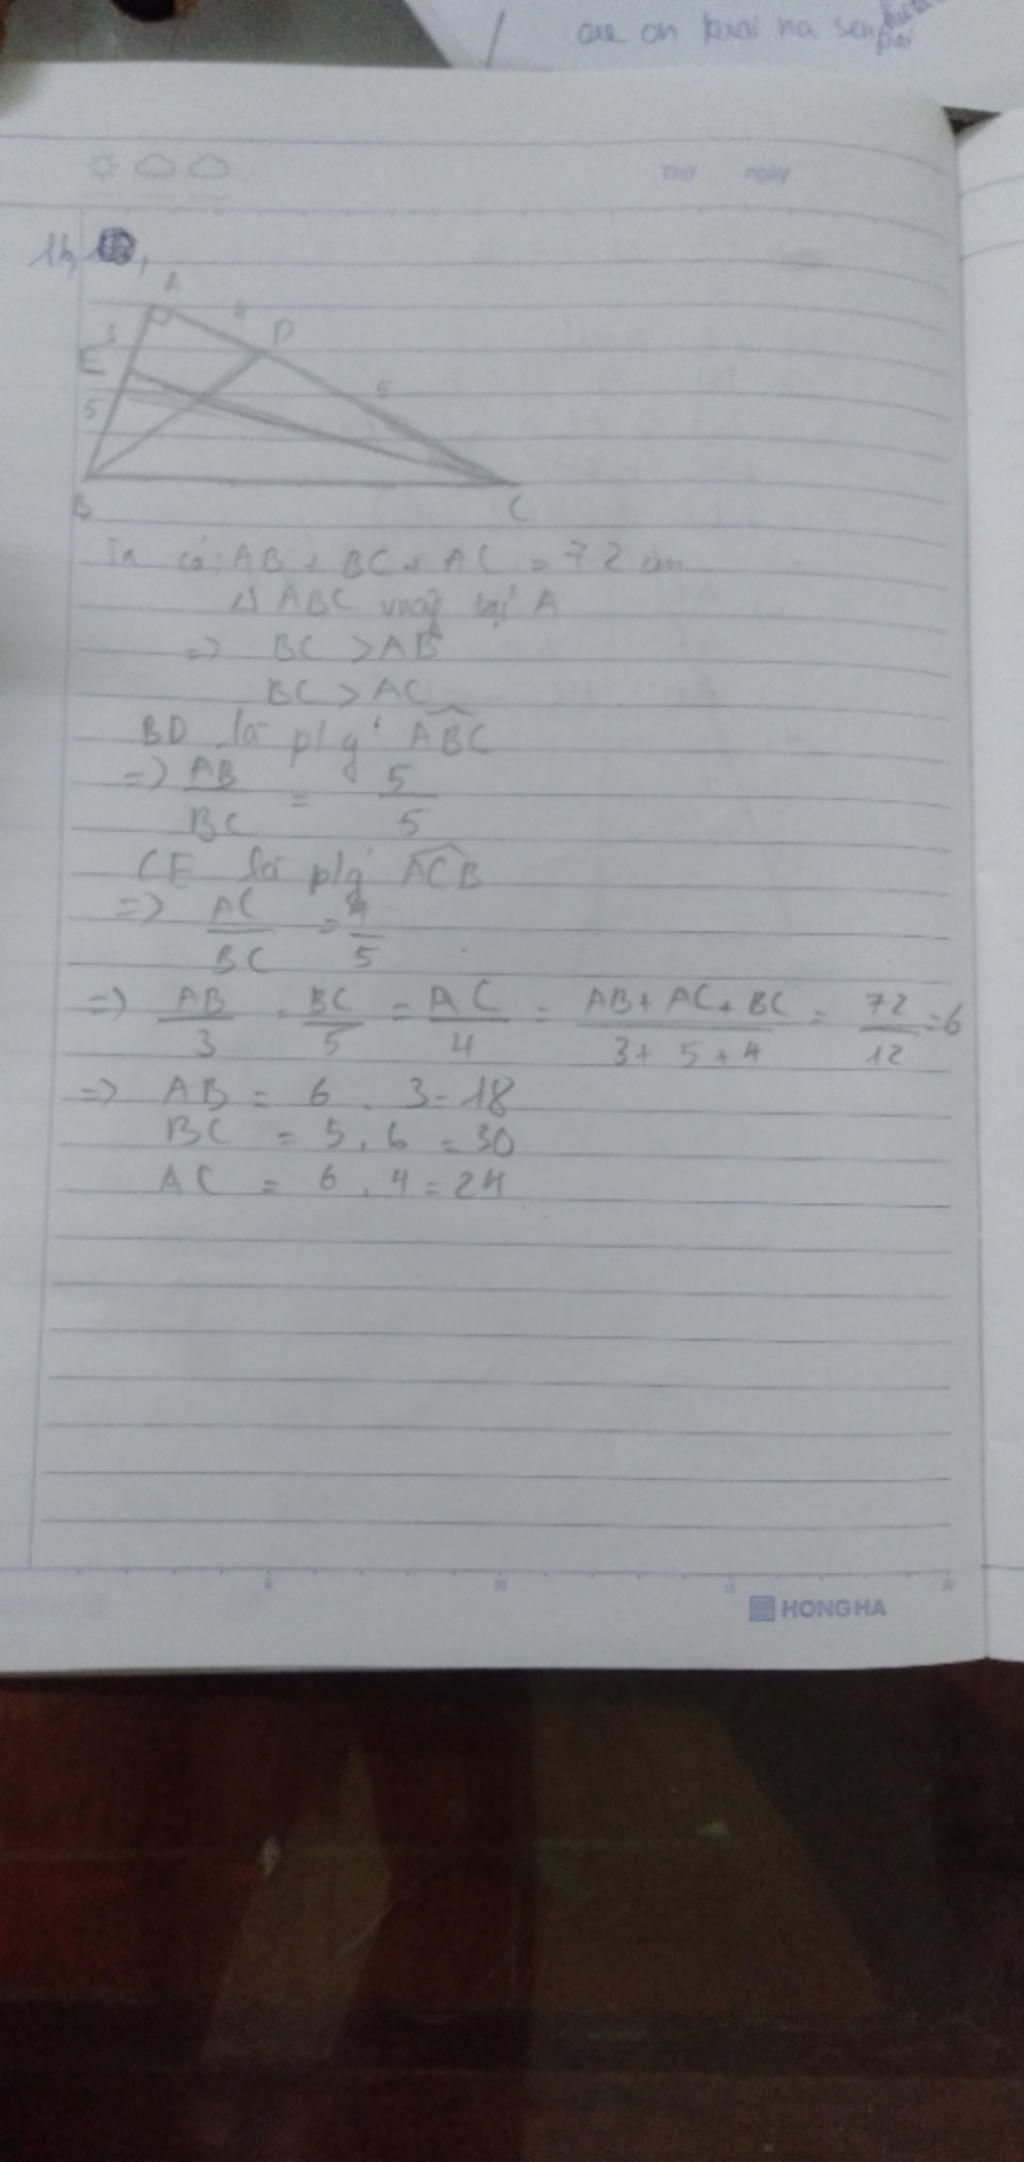 are on krai na senpai
THỨ NGÀY
1b,
A
4
D
3
E
5
5
B
C
Ta có: AB + BC + AC = 72 cm
Δ ABC vuông tại A
=> BC > AB
BC > AC
BD là p/g ABC
=> AB/BC = 5/5
CE là p/g ACB
=> AC/BC = 4/5
=> AB/3 = BC/5 = AC/4 = AB + AC + BC/3 + 5 + 4 = 72/12 = 6
=> AB = 6 . 3 = 18
BC = 5 . 6 = 30
AC = 6 . 4 = 24
5 10 15 20
HONG HA